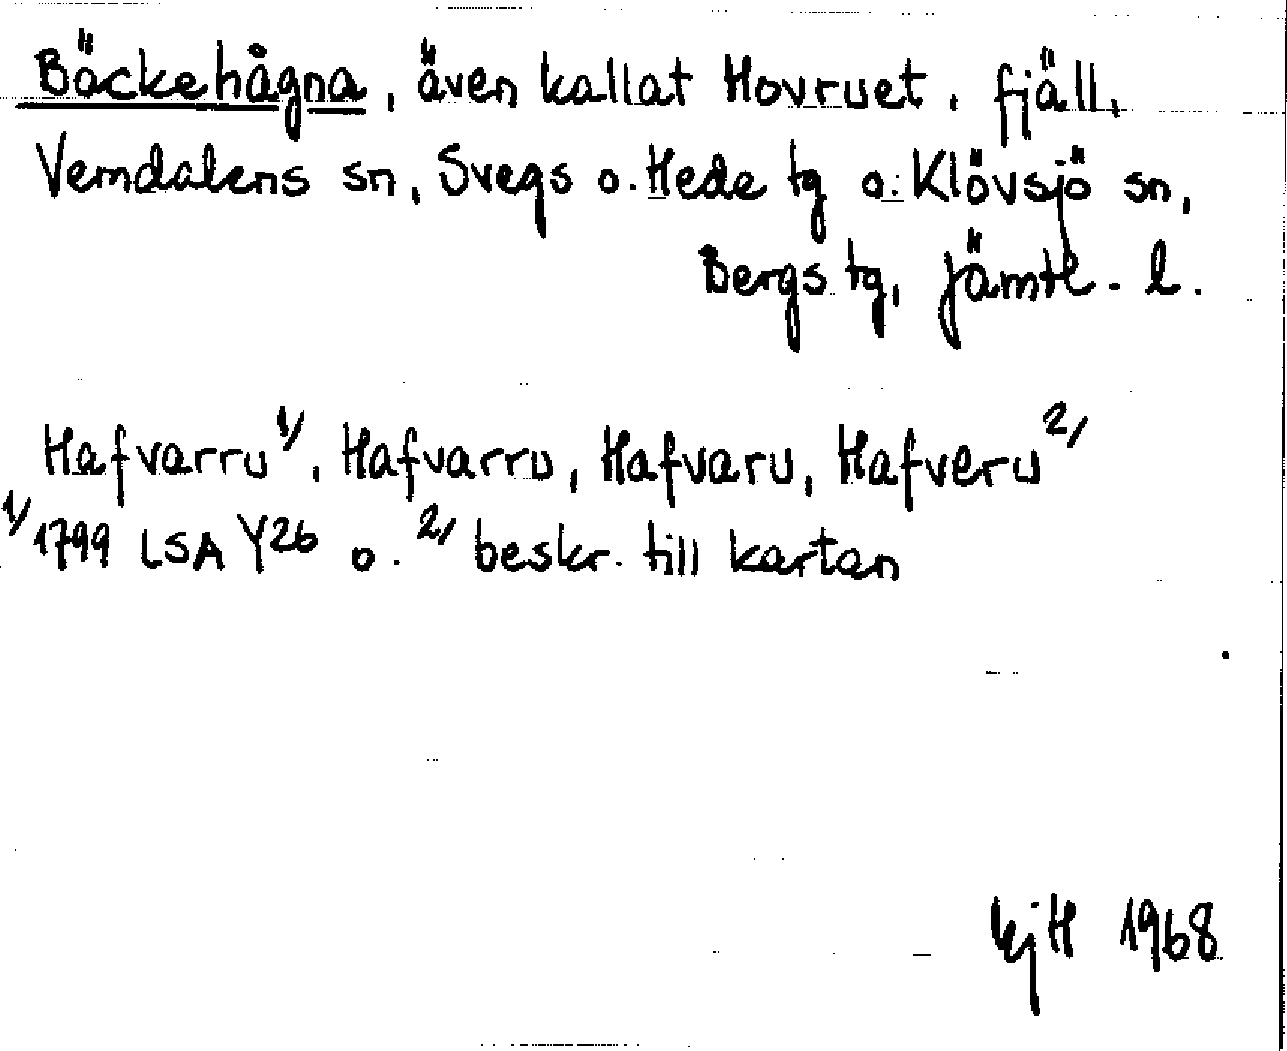 Bäckehågna, även kallat Hovruet. fjäll,
Vemdalens sn, Svegs o. Hede tg o. Klövsjö sn,
Bergs tg, Jämtl. l.
Hafvarru 1/, Hafvarru, Hafvaru, Hafveru 2/
1/ 1799 LSA Y26 o. 2/ beskr. till kartan
KjH 1968